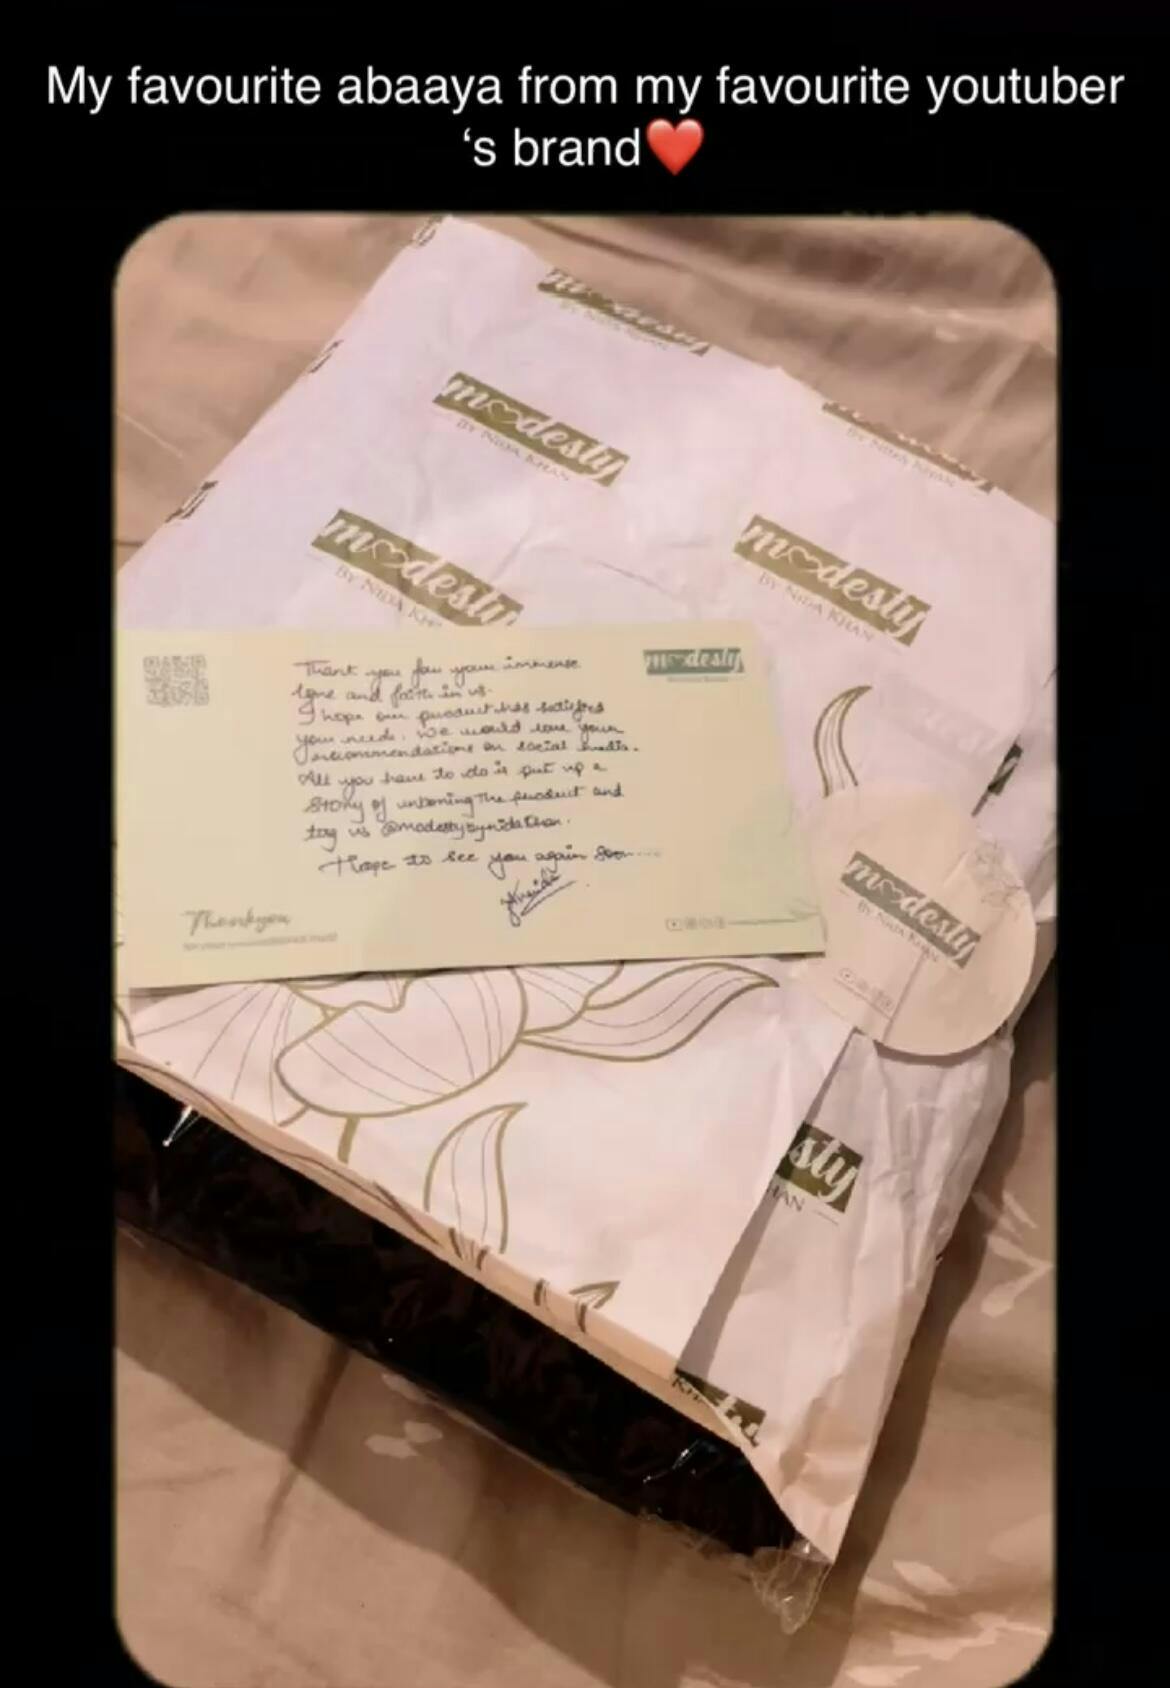 My favourite abaaya from my favourite youtuber
‘s brand❤️
modesty
BY NIDA KHAN
modesty
BY NIDA KHAN
modesty
BY NIDA KHAN
modesty
BY NIDA
modesty
BY NIDA KHAN
modesty
Thank you for your immense
love and faith in us.
I hope our product has satisfied
your needs. We would love your
recommendations on social media.
All you have to do is put up a
story of unboxing the product and
tag us @modestybynidakhan.
Hope to see you again soon....
Thankyou
modesty
BY NIDA KHAN
sty
HAN